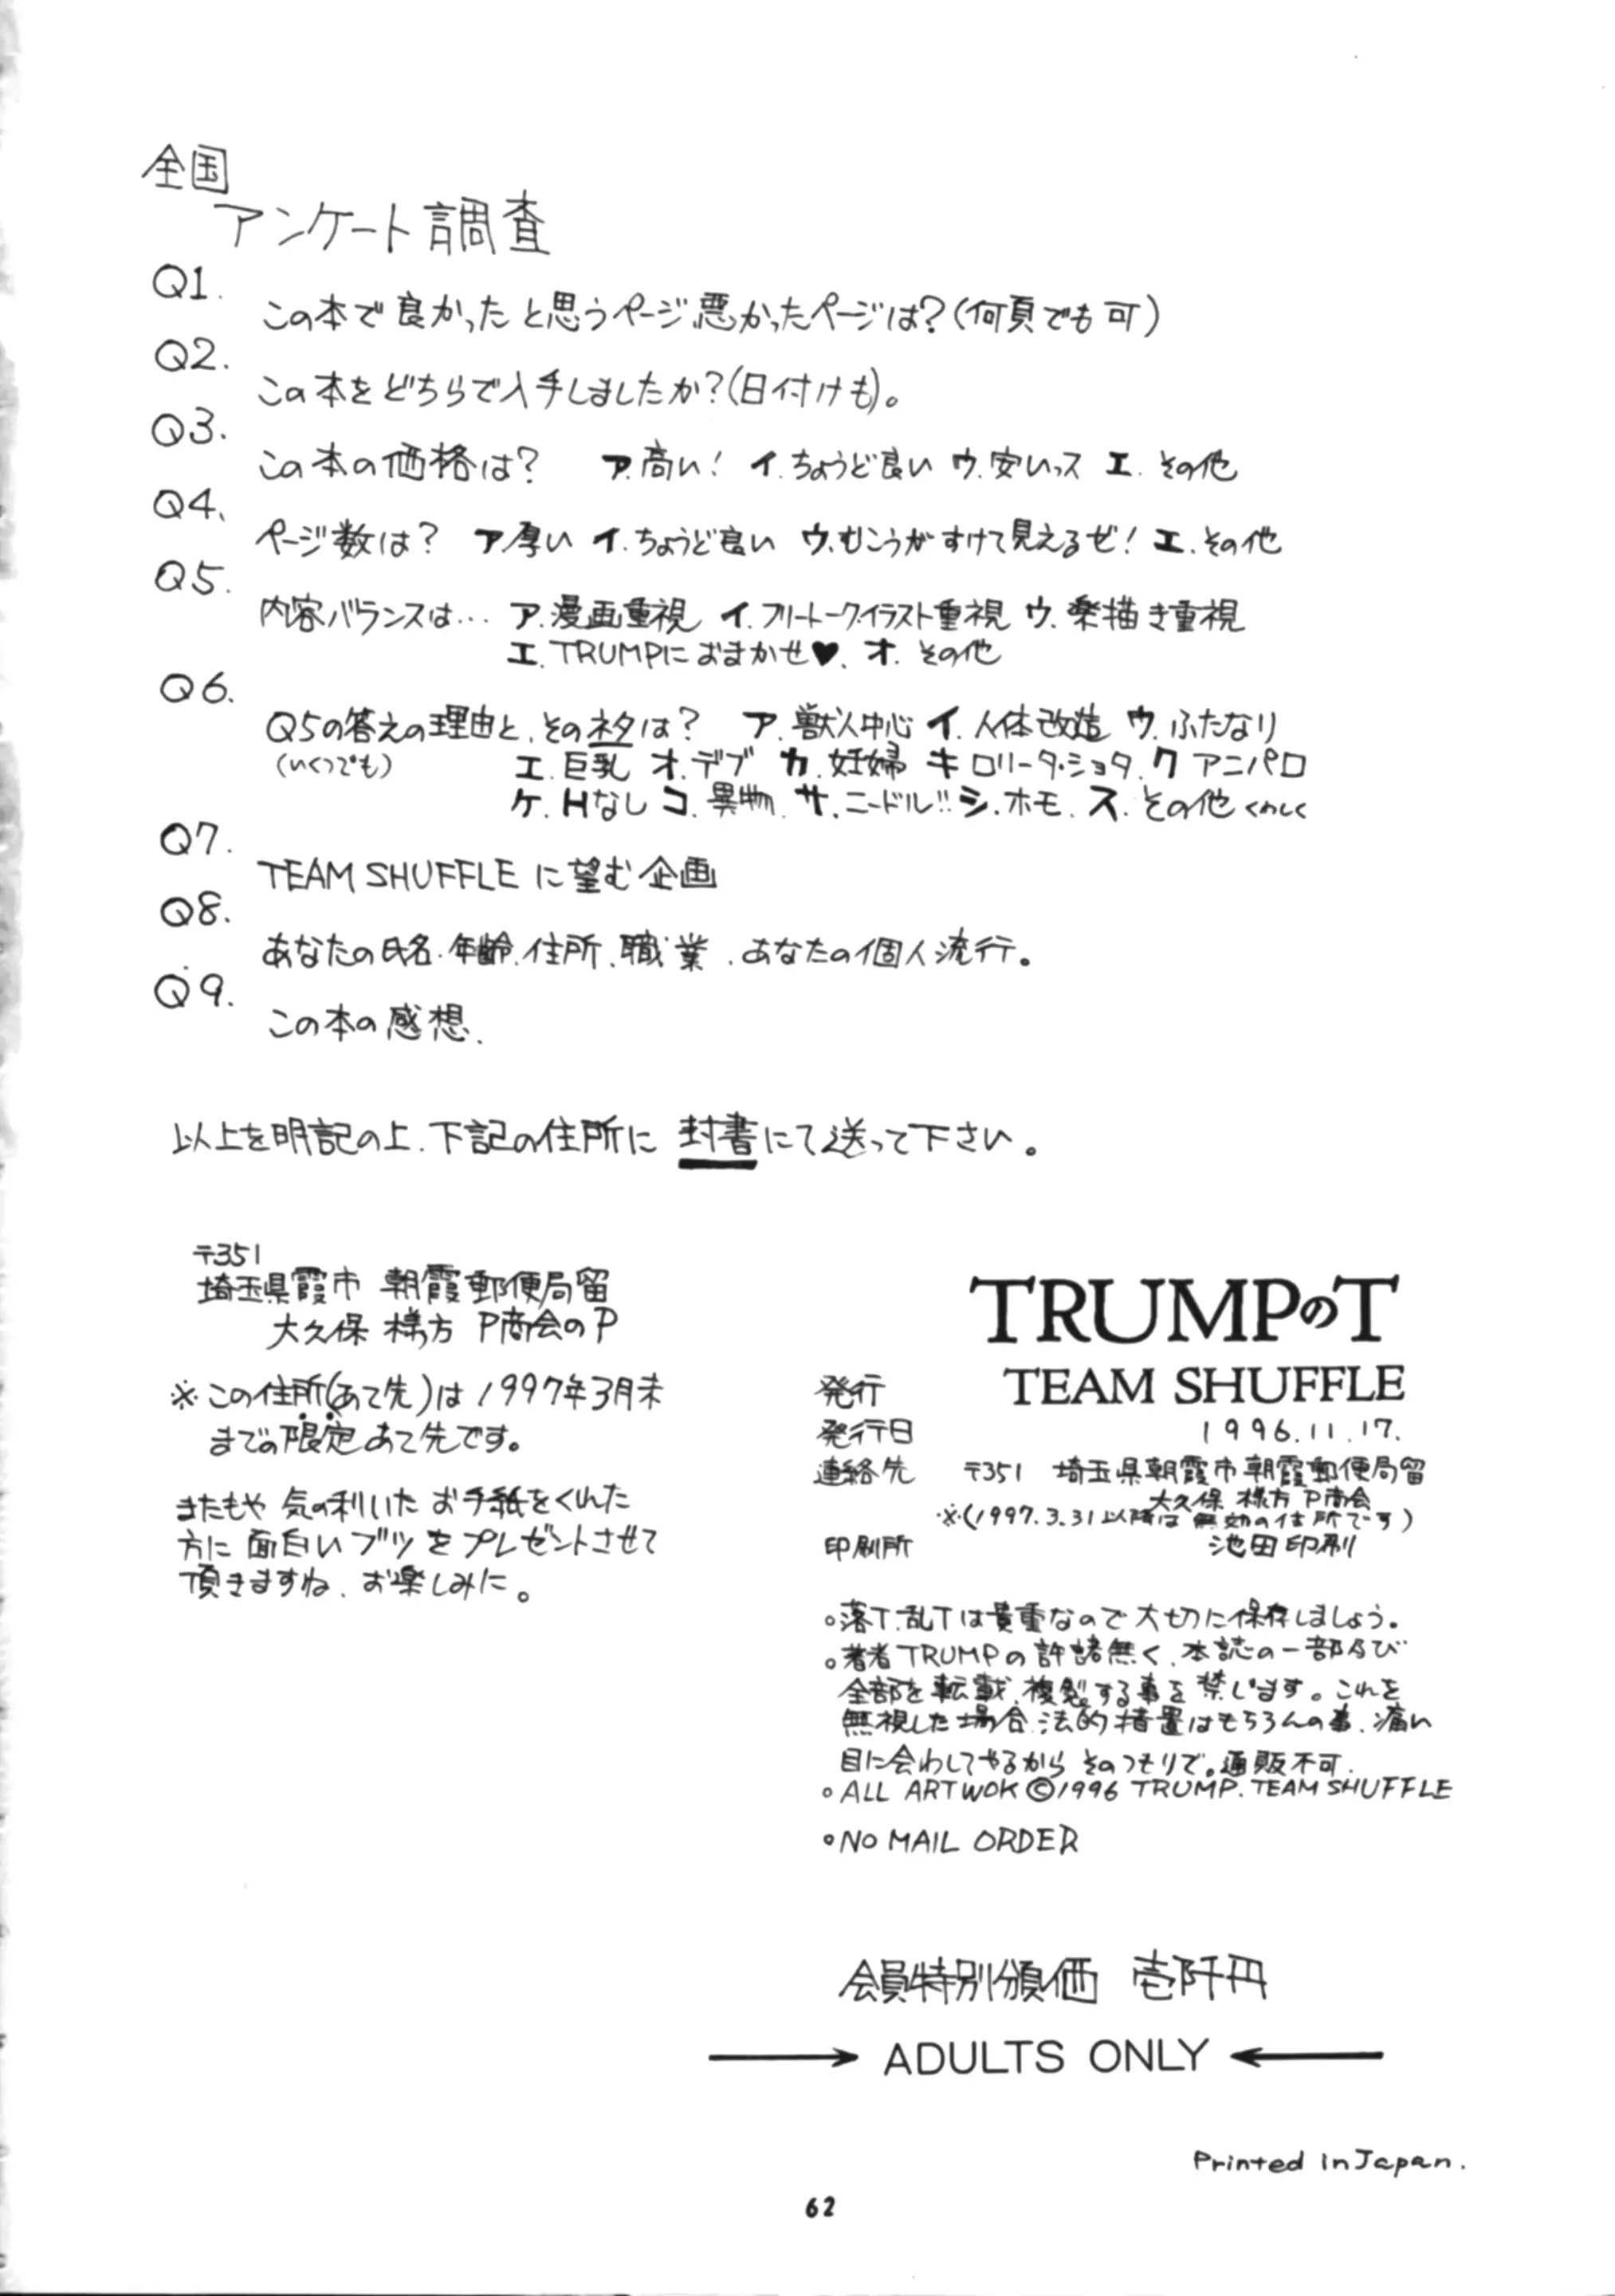 全国
アンケート調査
Q1.
この本で良かったと思うページ悪かったページは?(何頁でも可)
Q2.
この本をどちらで入手しましたか?(日付けも)。
Q3.
この本の価格は? ア.高い! イ.ちょうど良い ウ.安いっス エ.その他
Q4.
ページ数は? ア.厚い イ.ちょうど良い ウ.むこうがすけて見えるぜ! エ.その他
Q5.
内容バランスは… ア.漫画重視 イ.フリートーク.イラスト重視 ウ.楽描き重視
エ.TRUMPにおまかせ♥. オ.その他
Q6.
Q5の答えの理由と、そのネタは? ア.獣人中心 イ.人体改造 ウ.ふたなり
(いくつでも) エ.巨乳 オ.デブ カ.妊婦 キ ロリータ・ショタ. ク アニパロ
ケ.Hなし コ.異物. サ.ニードル!! シ.ホモ. ス.その他 くわしく
Q7.
TEAM SHUFFLE に望む企画
Q8.
あなたの氏名.年齢.住所.職業.あなたの個人流行。
Q9.
この本の感想.
以上を明記の上.下記の住所に 封書にて送って下さい。
〒351
埼玉県霞市 朝霞郵便局留
大久保 様方 P商会のP
※この住所(あて先)は1997年3月末
までの限定あて先です。
またもや 気の利いた お手紙をくれた
方に 面白いブツをプレゼントさせて
頂きますね、お楽しみに。
TRUMPのT
発行 TEAM SHUFFLE
発行日 1996.11.17.
連絡先 〒351 埼玉県朝霞市朝霞郵便局留
大久保 様方 P商会
※(1997.3.31以降は無効の住所です)
印刷所 池田印刷
○落T.乱Tは貴重なので大切に保存しましょう。
○著者TRUMPの許諾無く、本誌の一部及び
全部を転載.複製する事を禁じます。これを
無視した場合.法的措置はもちろんの事.痛い
目に会わしてやるからそのつもりで。通販不可.
○ALL ARTWOK ©1996 TRUMP. TEAM SHUFFLE
○NO MAIL ORDER
会員特別頒価 壱阡円
→ ADULTS ONLY ←
Printed in Japan.
62